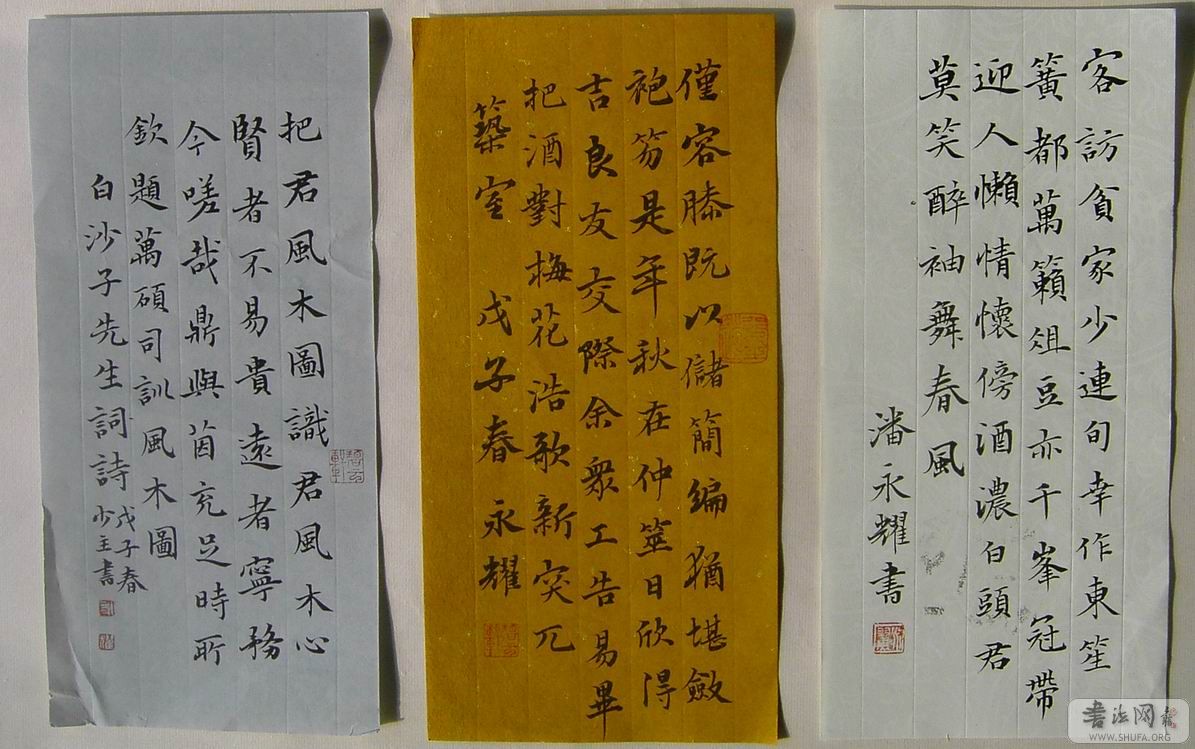 客訪貧家少連旬幸作東笙
簧都萬籟俎豆亦千峯冠帶
迎人懶情懷傍酒濃白頭君
莫笑醉袖舞春風
潘永耀書
僅容膝既以儲簡編猶堪斂
袍笏是年秋在仲筮日欣得
吉良友交際余衆工告易畢
把酒對梅花浩歌新突兀
築室 戊子春 永耀
把君風木圖識君風木心
賢者不易貴遠者寧務
今嗟哉鼎與茵充足時所
欽題萬碩司訓風木圖
白沙子先生詞詩
戊子春
少主書
書法网
WWW.SHUFA.ORG